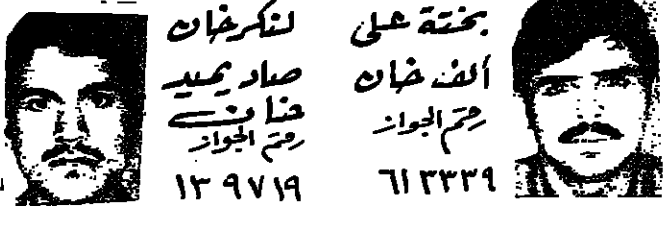 بختة على
ألف خان
رقم الجواز
٦١٣٣٣٩
لنكرخان
صاد يميد
خان
رقم الجواز
١٣٩٧١٩